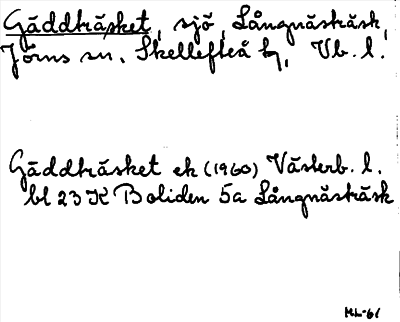 Gäddträsket, sjö, Långnästräsk,
Jörns sn, Skellefteå kn, Vb. l.
Gäddträsket ek (1960) Västerb. l.
bl 23 K Boliden 5a Långnästräsk
ML-61